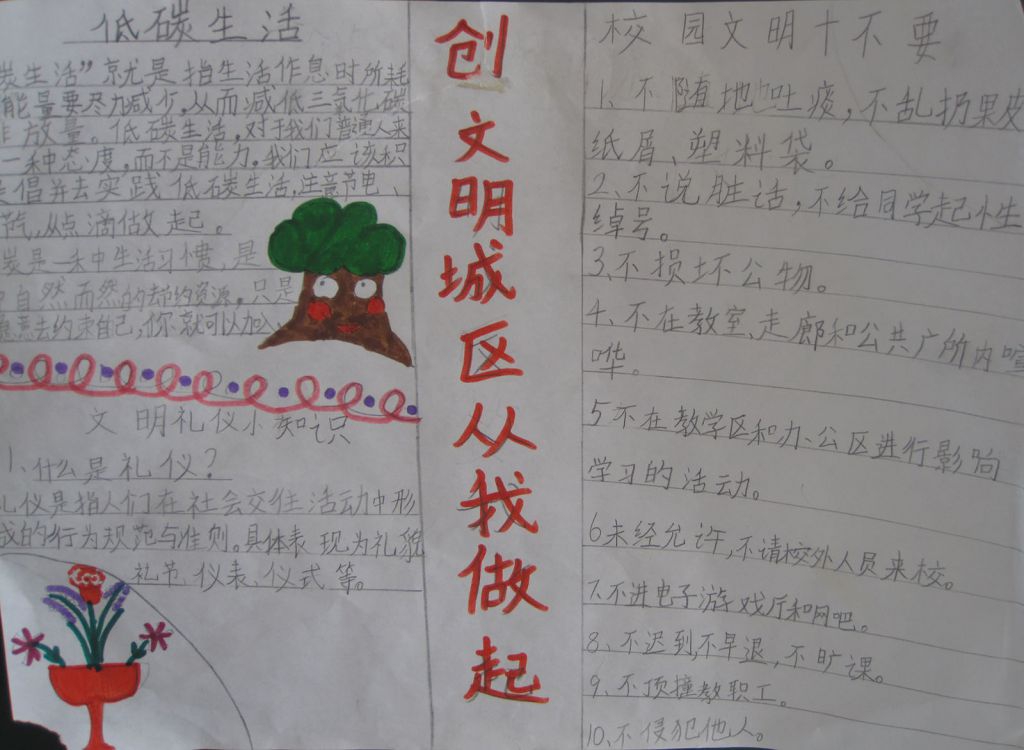 低碳生活
炭生活”就是指生活作息时所耗
能量要尽力减少，从而减低二氧化碳
放量。低碳生活，对于我们普通人来
一种态度，而不是能力。我们应该积
倡并去实践低碳生活，注意节电、
节气，从点滴做起。
炭是一种生活习惯，是
自然而然的去节约资源，只是
愿意去约束自己，你就可以加入
文明礼仪小知识
1、什么是礼仪？
礼仪是指人们在社会交往活动中形
成的行为规范与准则。具体表现为礼貌
礼节、仪表、仪式等。
创
文
明
城
区
从
我
做
起
校园文明十不要
1、不随地吐痰，不乱扔果皮
纸屑、塑料袋。
2、不说脏话，不给同学起小生
绰号。
3、不损坏公物。
4、不在教室、走廊和公共广所内喧
哗。
5不在教学区和办公区进行影响
学习的活动。
6未经允许，不请校外人员来校。
7、不进电子游戏厅和网吧。
8、不迟到，不早退，不旷课。
9、不顶撞教职工。
10、不侵犯他人。